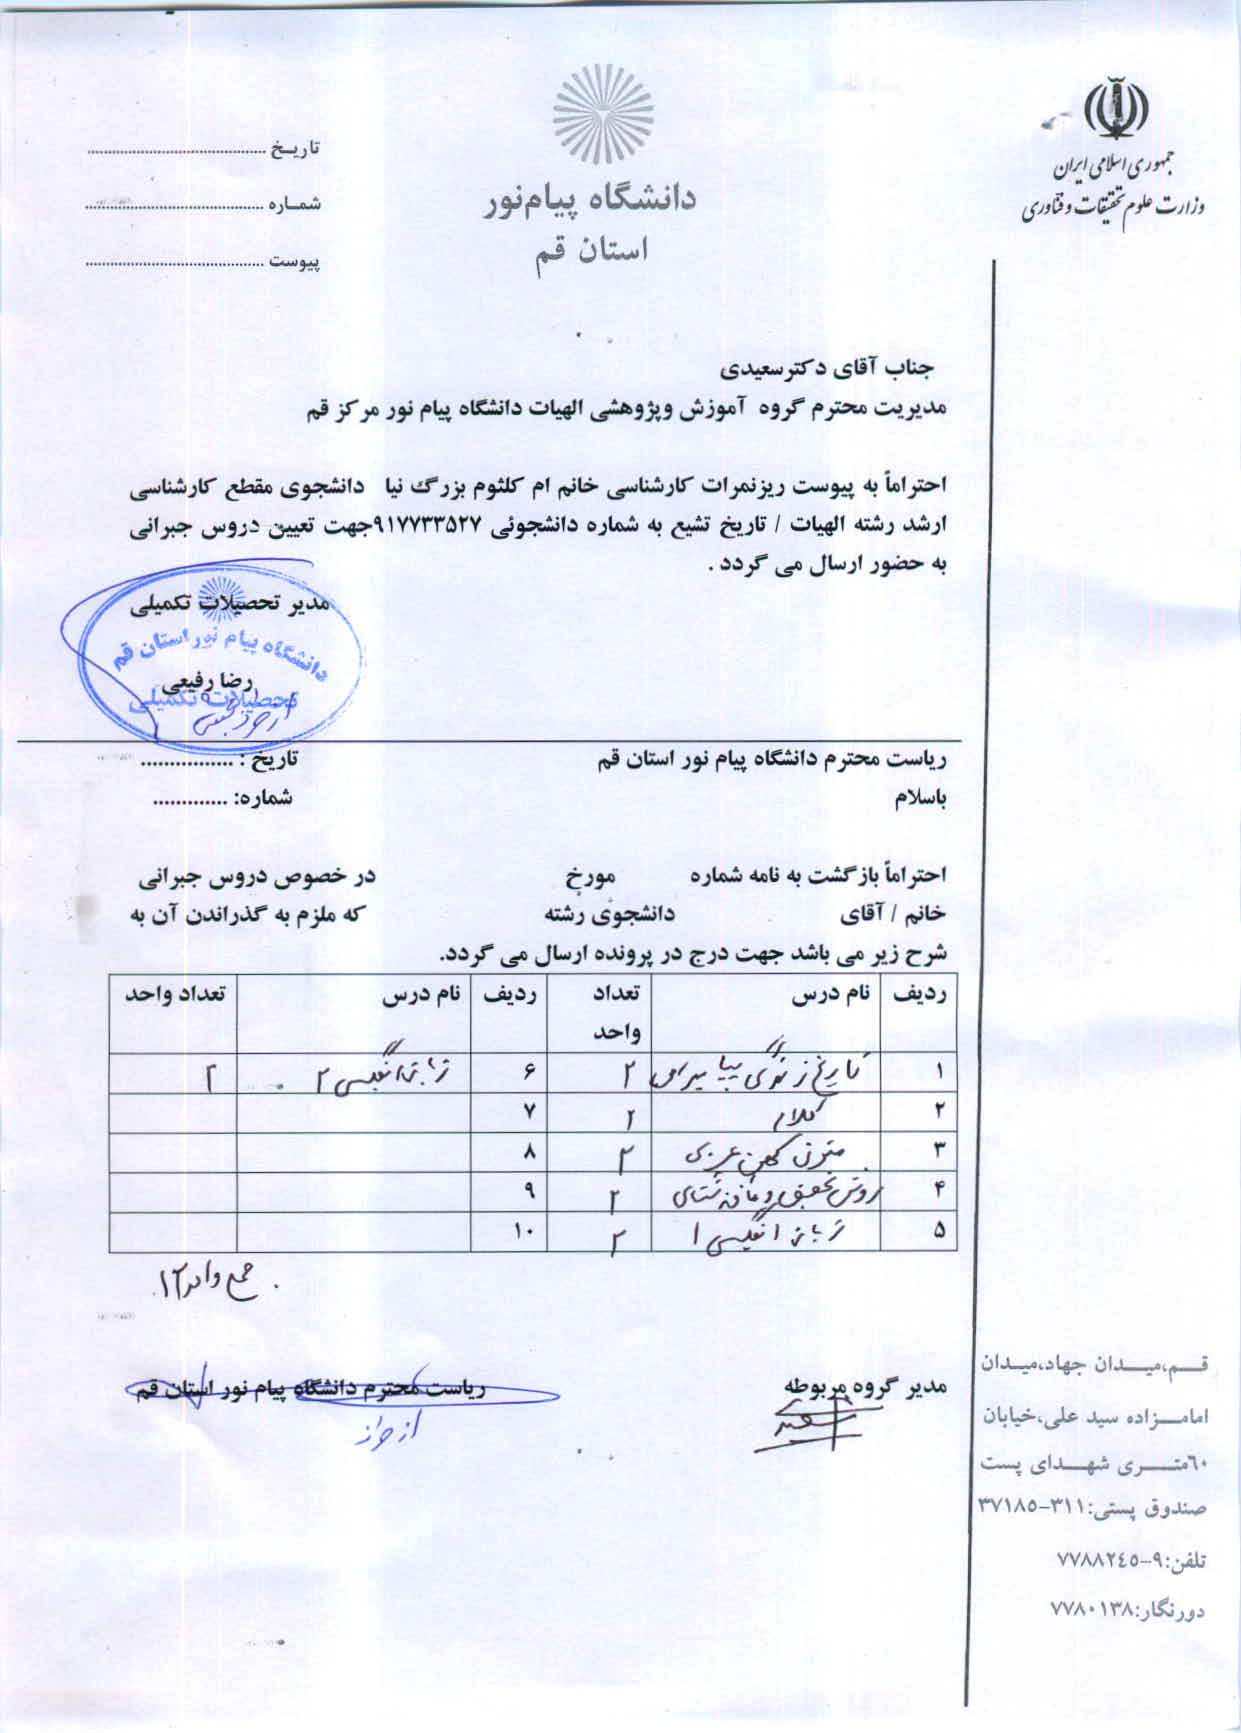 جمهوری اسلامی ایران
وزارت علوم تحقیقات و فناوری
دانشگاه پیام‌نور
استان قم
تاریـخ ........................................
شمـاره ........................................
پیوست ........................................
جناب آقای دکترسعیدی
مدیریت محترم گروه آموزش وپژوهشی الهیات دانشگاه پیام نور مرکز قم
احتراماً به پیوست ریزنمرات کارشناسی خانم ام کلثوم بزرگ نیا دانشجوی مقطع کارشناسی
ارشد رشته الهیات / تاریخ تشیع به شماره دانشجوئی ۹۱۷۷۳۳۵۲۷جهت تعیین دروس جبرانی
به حضور ارسال می گردد .
مدیر تحصیلات تکمیلی
دانشگاه پیام نور استان قم
رضا رفیعی
تحصیلات تکمیلی
ریاست محترم دانشگاه پیام نور استان قم تاریخ : ...............
باسلام شماره: .............
احتراماً بازگشت به نامه شماره مورخ در خصوص دروس جبرانی
خانم / آقای دانشجوی رشته که ملزم به گذراندن آن به
شرح زیر می باشد جهت درج در پرونده ارسال می گردد.
ردیف نام درس تعداد واحد ردیف نام درس تعداد واحد
۱ تاریخ زندگی پیامبر ۲ ۶ زبان انگلیسی ۲ ۲
۲ کلام ۲ ۷
۳ متون کهن عربی ۲ ۸
۴ روش تحقیق و ۲ ۹
۵ زبان انگلیسی ۱ ۲ ۱۰
جمع واحد ۱۲
مدیر گروه مربوطه ریاست محترم دانشگاه پیام نور استان قم
قــم،میــدان جهاد،میـدان
امامــزاده سید علی،خیابان
٦٠متــری شهــدای پست
صندوق پستی:۳۱۱-۳۷۱۸۵
تلفن:۹-۷۷۸۸۲٤٥
دورنگار:۷۷۸۰۱۳۸